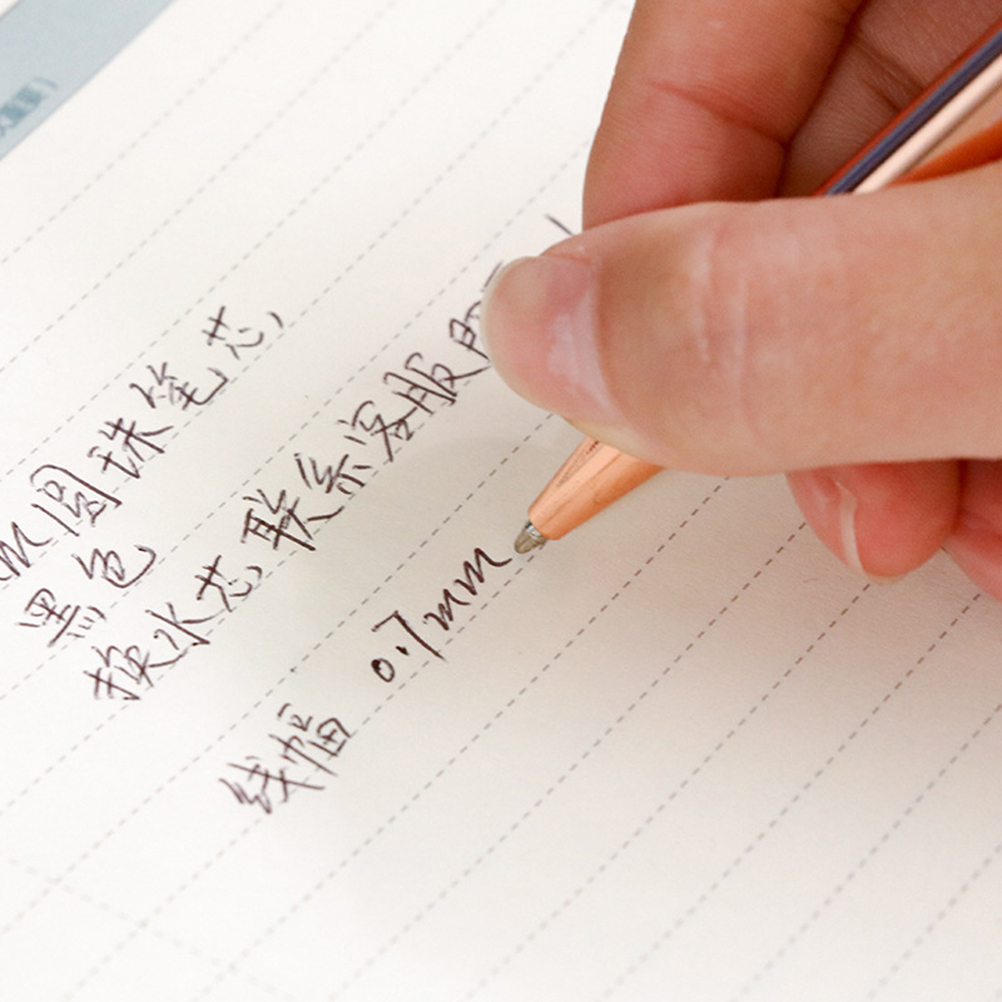 m圆珠笔芯，
黑色
换水芯联系客服
线幅 0.7mm